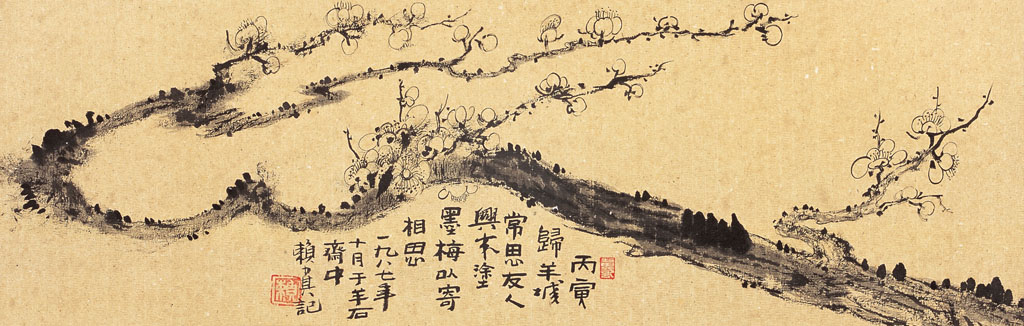 丙寅
歸羊城
常思友人
興来塗
墨梅以寄
相思
一九八七年
十月于羊石
齋中
賴少其記